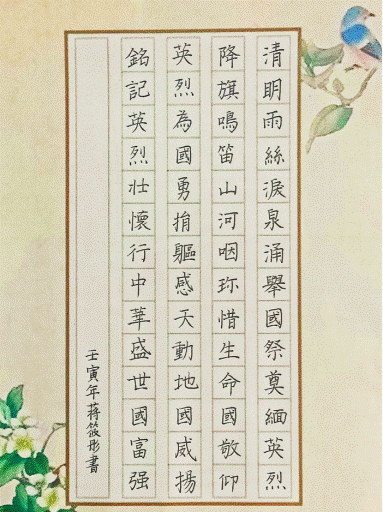 清明雨絲淚泉涌舉國祭奠緬英烈
降旗鳴笛山河咽珍惜生命國敬仰
英烈為國勇捐軀感天動地國威揚
銘記英烈壯懷行中華盛世國富强
壬寅年蔣筱彤書